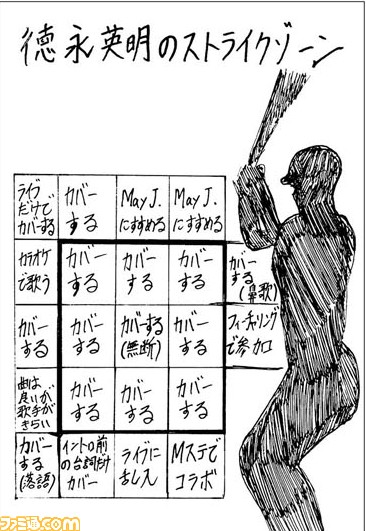 徳永英明のストライクゾーン
ライブ
だけで
カバーする
カバー
する
May J.
にすすめる
May J.
にすすめる
カラオケ
で歌う
カバー
する
カバー
する
カバー
する
カバー
する
(鼻歌)
カバー
する
カバー
する
カバーする
(無断)
カバー
する
フィーチャリング
で参加
曲は
良いが
歌手が
きらい
カバー
する
カバー
する
カバー
する
カバー
する
(落語)
イントロ前
の台詞だけ
カバー
ライブに
乱入
Mステで
コラボ
ファミ通.com